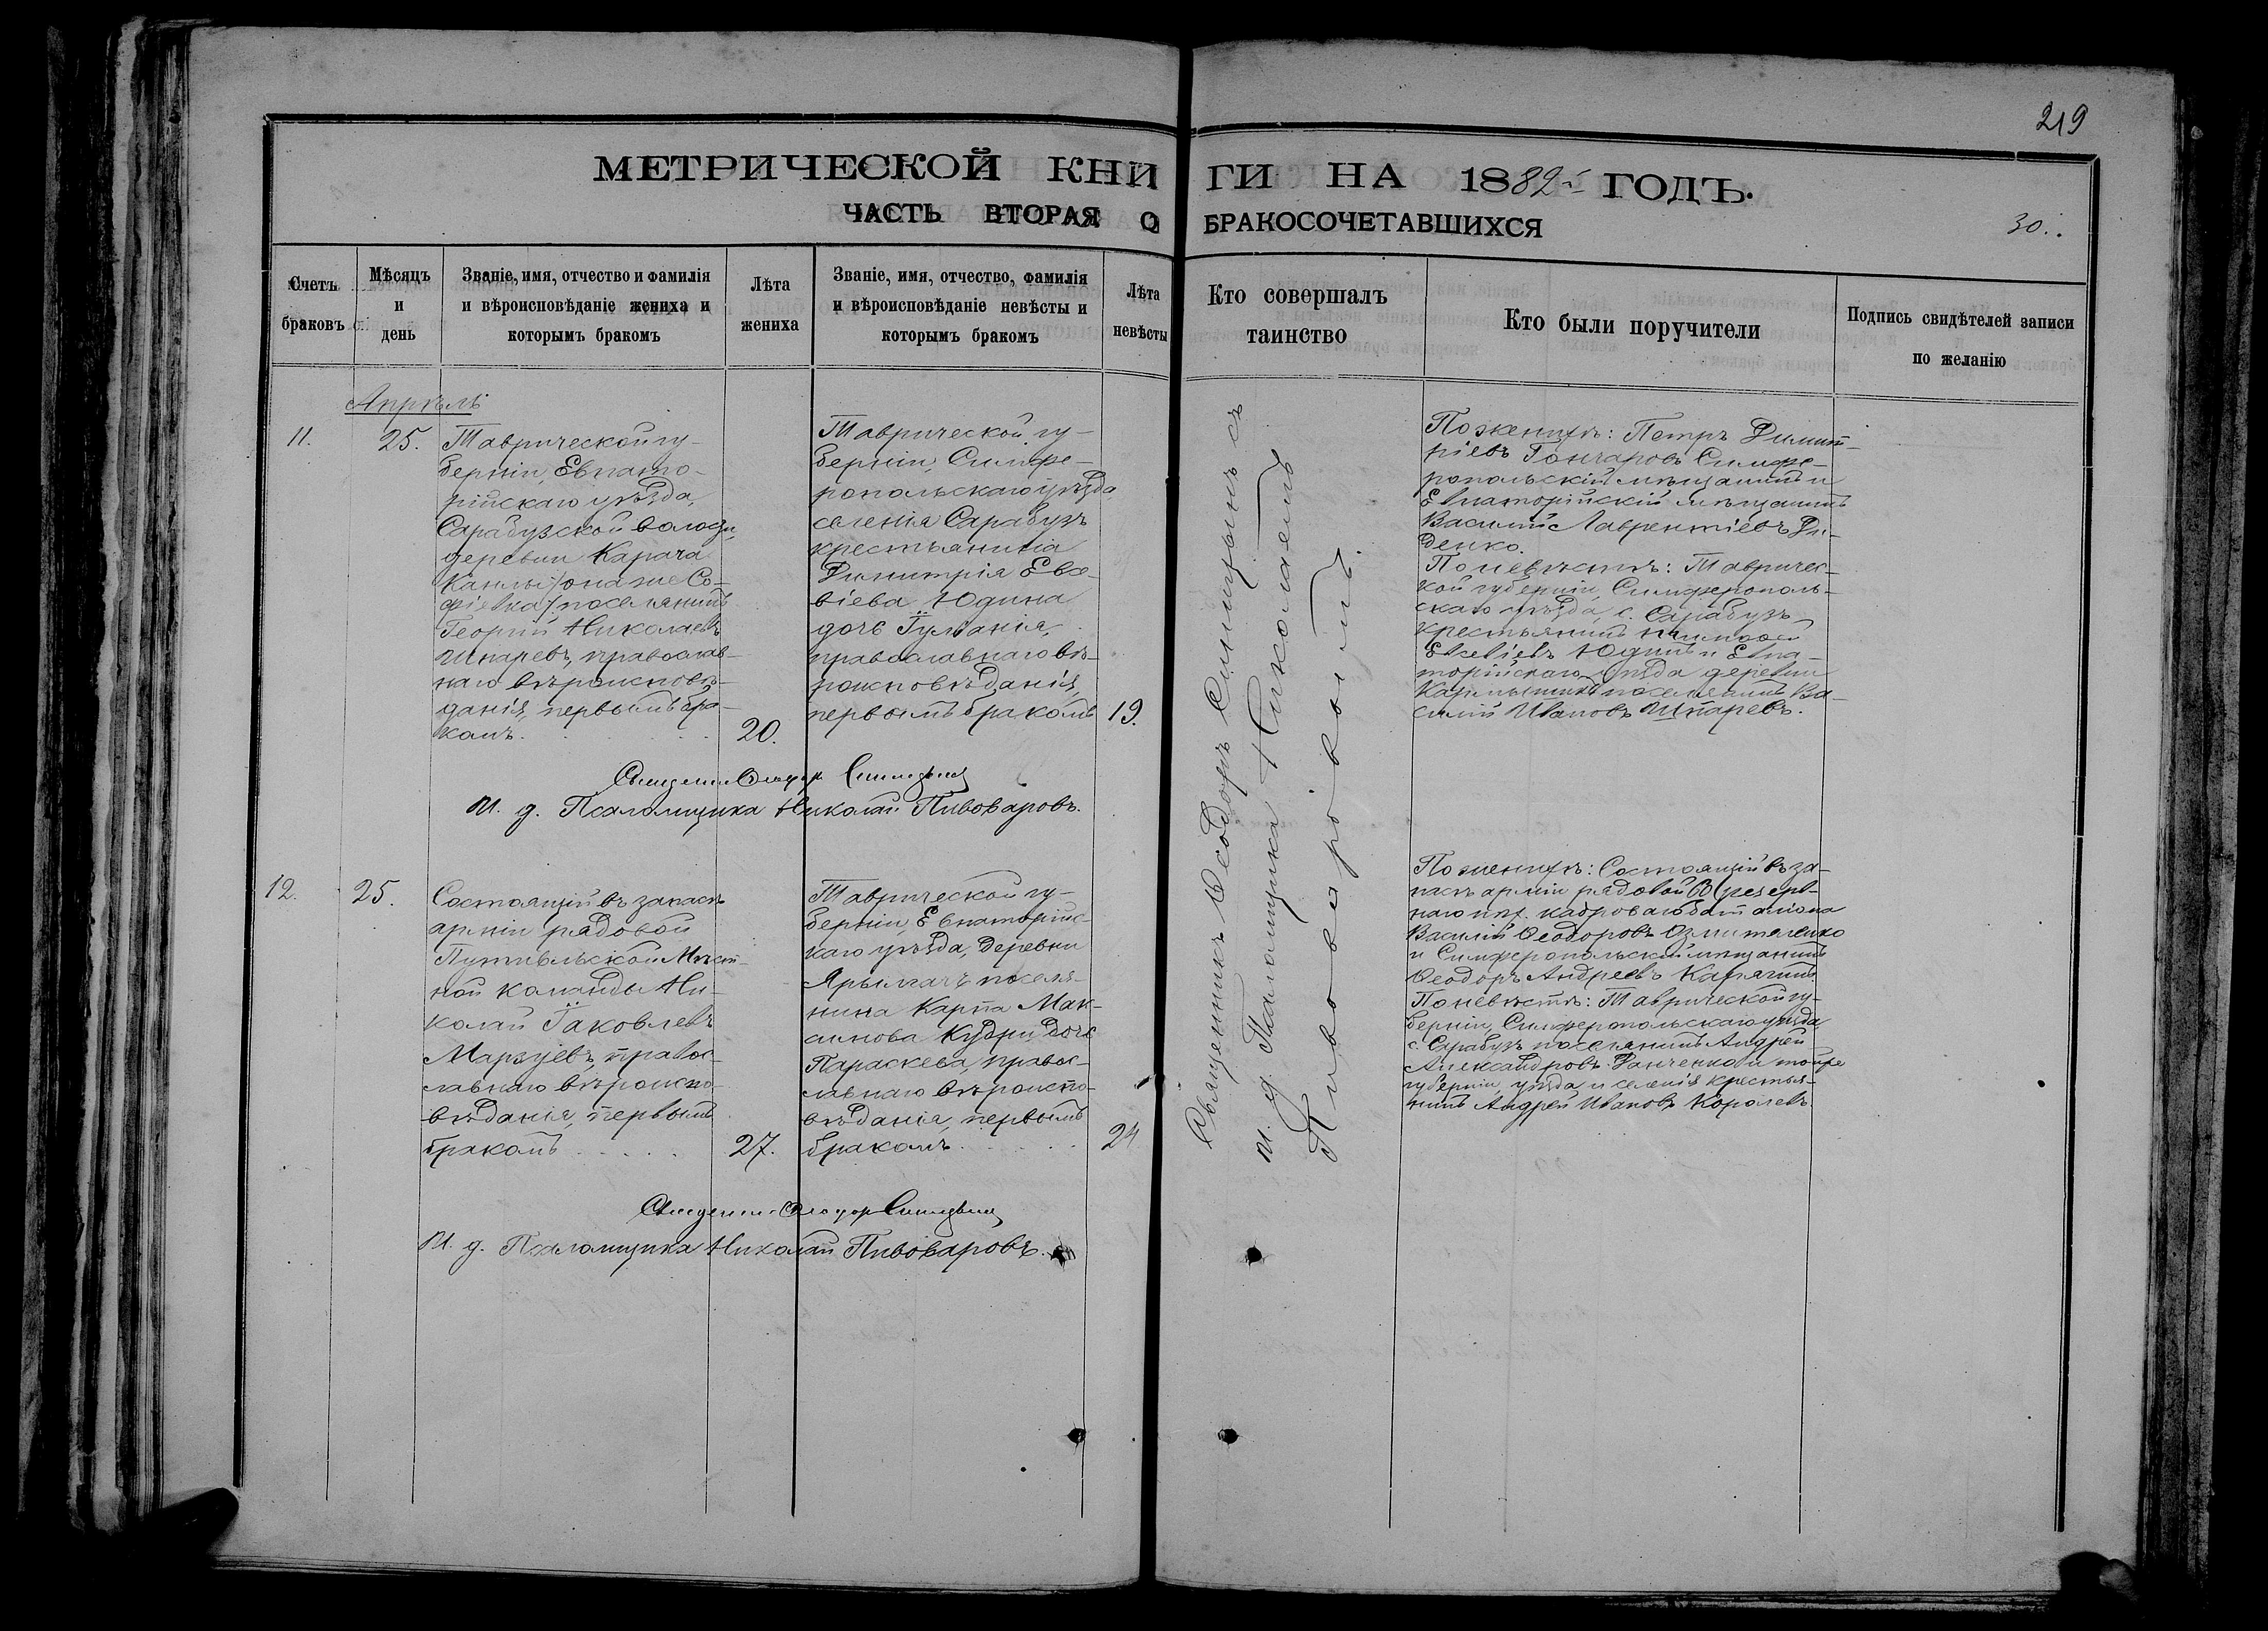 219
МЕТРИЧЕСКОЙ КНИГИ НА 1882й ГОДЪ.
ЧАСТЬ ВТОРАЯ О БРАКОСОЧЕТАВШИХСЯ
30.
Счетъ браковъ
Мѣсяцъ и день
Званіе, имя, отчество и фамилія и вѣроисповѣданіе жениха и которымъ бракомъ
Лѣта жениха
Званіе, имя, отчество, фамилія и вѣроисповѣданіе невѣсты и которымъ бракомъ
Лѣта невѣсты
Кто совершалъ таинство
Кто были поручители
Подпись свидѣтелей записи по желанію
Апрѣль
11.
25.
Таврической гу-
берніи, Евпато-
рійскаго уѣзда,
Сарабузской волости,
деревни Карача
Канлы /она же Со-
фіевка/ поселянинъ
Георгій Николаевъ
Шпаревъ, православ-
наго вѣроисповѣ-
данія, первымъ бра-
комъ.
20.
Таврической гу-
берніи, Симфе-
ропольскаго уѣзда,
селенія Сарабузъ
крестьянина
Димитрія Евсе-
віева Юдина
дочь Іуліанія,
православнаго вѣ-
роисповѣданія,
первымъ бракомъ
19.
Священникъ Ѳеодоръ Синицынъ съ
и. д. Псаломщика Николаемъ
Пивоваровымъ.
По женихѣ: Петръ Димит-
ріевъ Гончаровъ Симфе-
ропольскій мѣщанинъ и
Евпаторійскій мѣщанинъ
Василій Лаврентіевъ Ди-
денко.
По невѣстѣ: Тавричес-
кой губерніи, Симферополь-
скаго уѣзда, с. Сарабузъ
крестьянинъ
Евсевіевъ Юдинъ и Евпа-
торійскаго уѣзда деревни
поселянинъ Ва-
силій Ивановъ Шпаревъ.
Священникъ Ѳеодоръ Синицынъ
И. д. Псаломщика Николай Пивоваровъ.
12.
25.
Состоящій въ запасѣ
арміи рядовой
Путивльской Мѣст-
ной команды Ни-
колай Іаковлевъ
Марзуевъ, правос-
лавнаго вѣроиспо-
вѣданія, первымъ
бракомъ
27.
Таврической гу-
берніи, Евпаторійс-
каго уѣзда, деревни
Ярылгачъ поселя-
нина Карпа Мак-
симова Кудри дочь
Параскева, правос-
лавнаго вѣроиспо-
вѣданія, первымъ
бракомъ
24
По женихѣ: Состоящій въ за-
пасѣ арміи рядовой резерв-
наго пѣх. кадроваго баталіона
Василій Ѳеодоровъ
и Симферопольскій мѣщанинъ
Ѳеодоръ Андреевъ Карягинъ.
По невѣстѣ: Таврической гу-
берніи, Симферопольскаго уѣзда
с. Сарабузъ поселянинъ Андрей
Александровъ Ранченко и той же
губерніи, уѣзда и селенія крестья-
нинъ Андрей Ивановъ Королевъ.
Священникъ Ѳеодоръ Синицынъ
И. д. Псаломщика Николай Пивоваровъ.